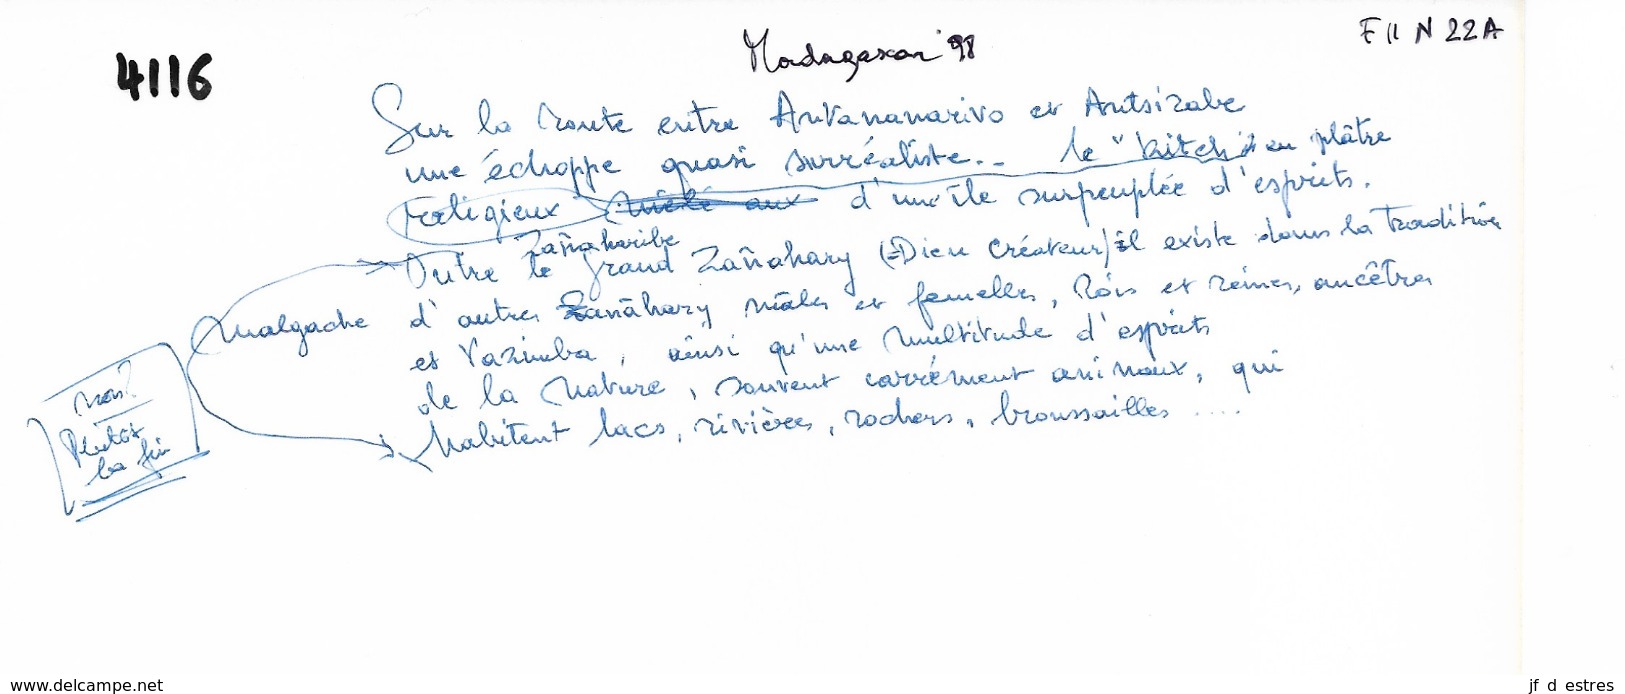 F 11 N 22A
Madagascar 98
4116
Sur la route entre Antananarivo et Antsirabe
une échoppe quasi surréaliste.. le "kitch" en plâtre
religieux mêlé aux d'une île surpeuplée d'esprits.
Zañaharibe
Outre le grand Zañahary (=Dieu Créateur) il existe dans la tradition
malgache d'autres Zanãhary mâles et femelles, Rois et reines, ancêtres
et Vazimba, ainsi qu'une multitude d'esprits
de la Nature, souvent carrément animaux, qui
habitent lacs, rivières, rochers, broussailles ....
non?
Plutôt
la fin
www.delcampe.net
jf d estres